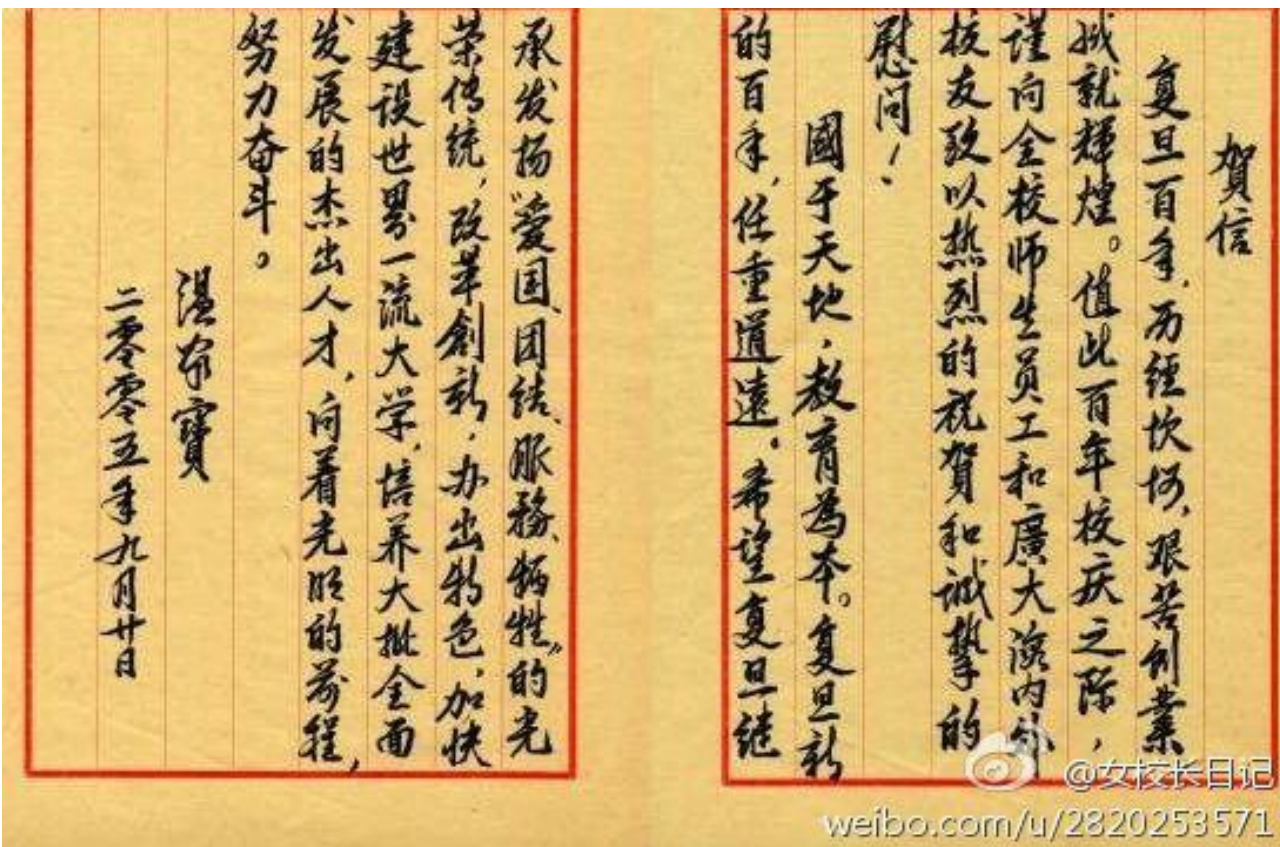 賀信
复旦百年，历经坎坷，艰苦创業
城就輝煌。值此百年校庆之际，
谨向全校师生员工和廣大海内外
校友致以热烈的祝賀和诚挚的
慰问！
國于天地，教育為本。复旦新
的百年，任重道遠。希望复旦继
承发扬“爱国、团结、服務、犧牲”的光
荣传统，改革創新，办出特色，加快
建设世界一流大学，培养大批全面
发展的杰出人才，向着光明的前程，
努力奋斗。
温家寶
二零零五年九月廿日
@女校长日记
weibo.com/u/2820253571